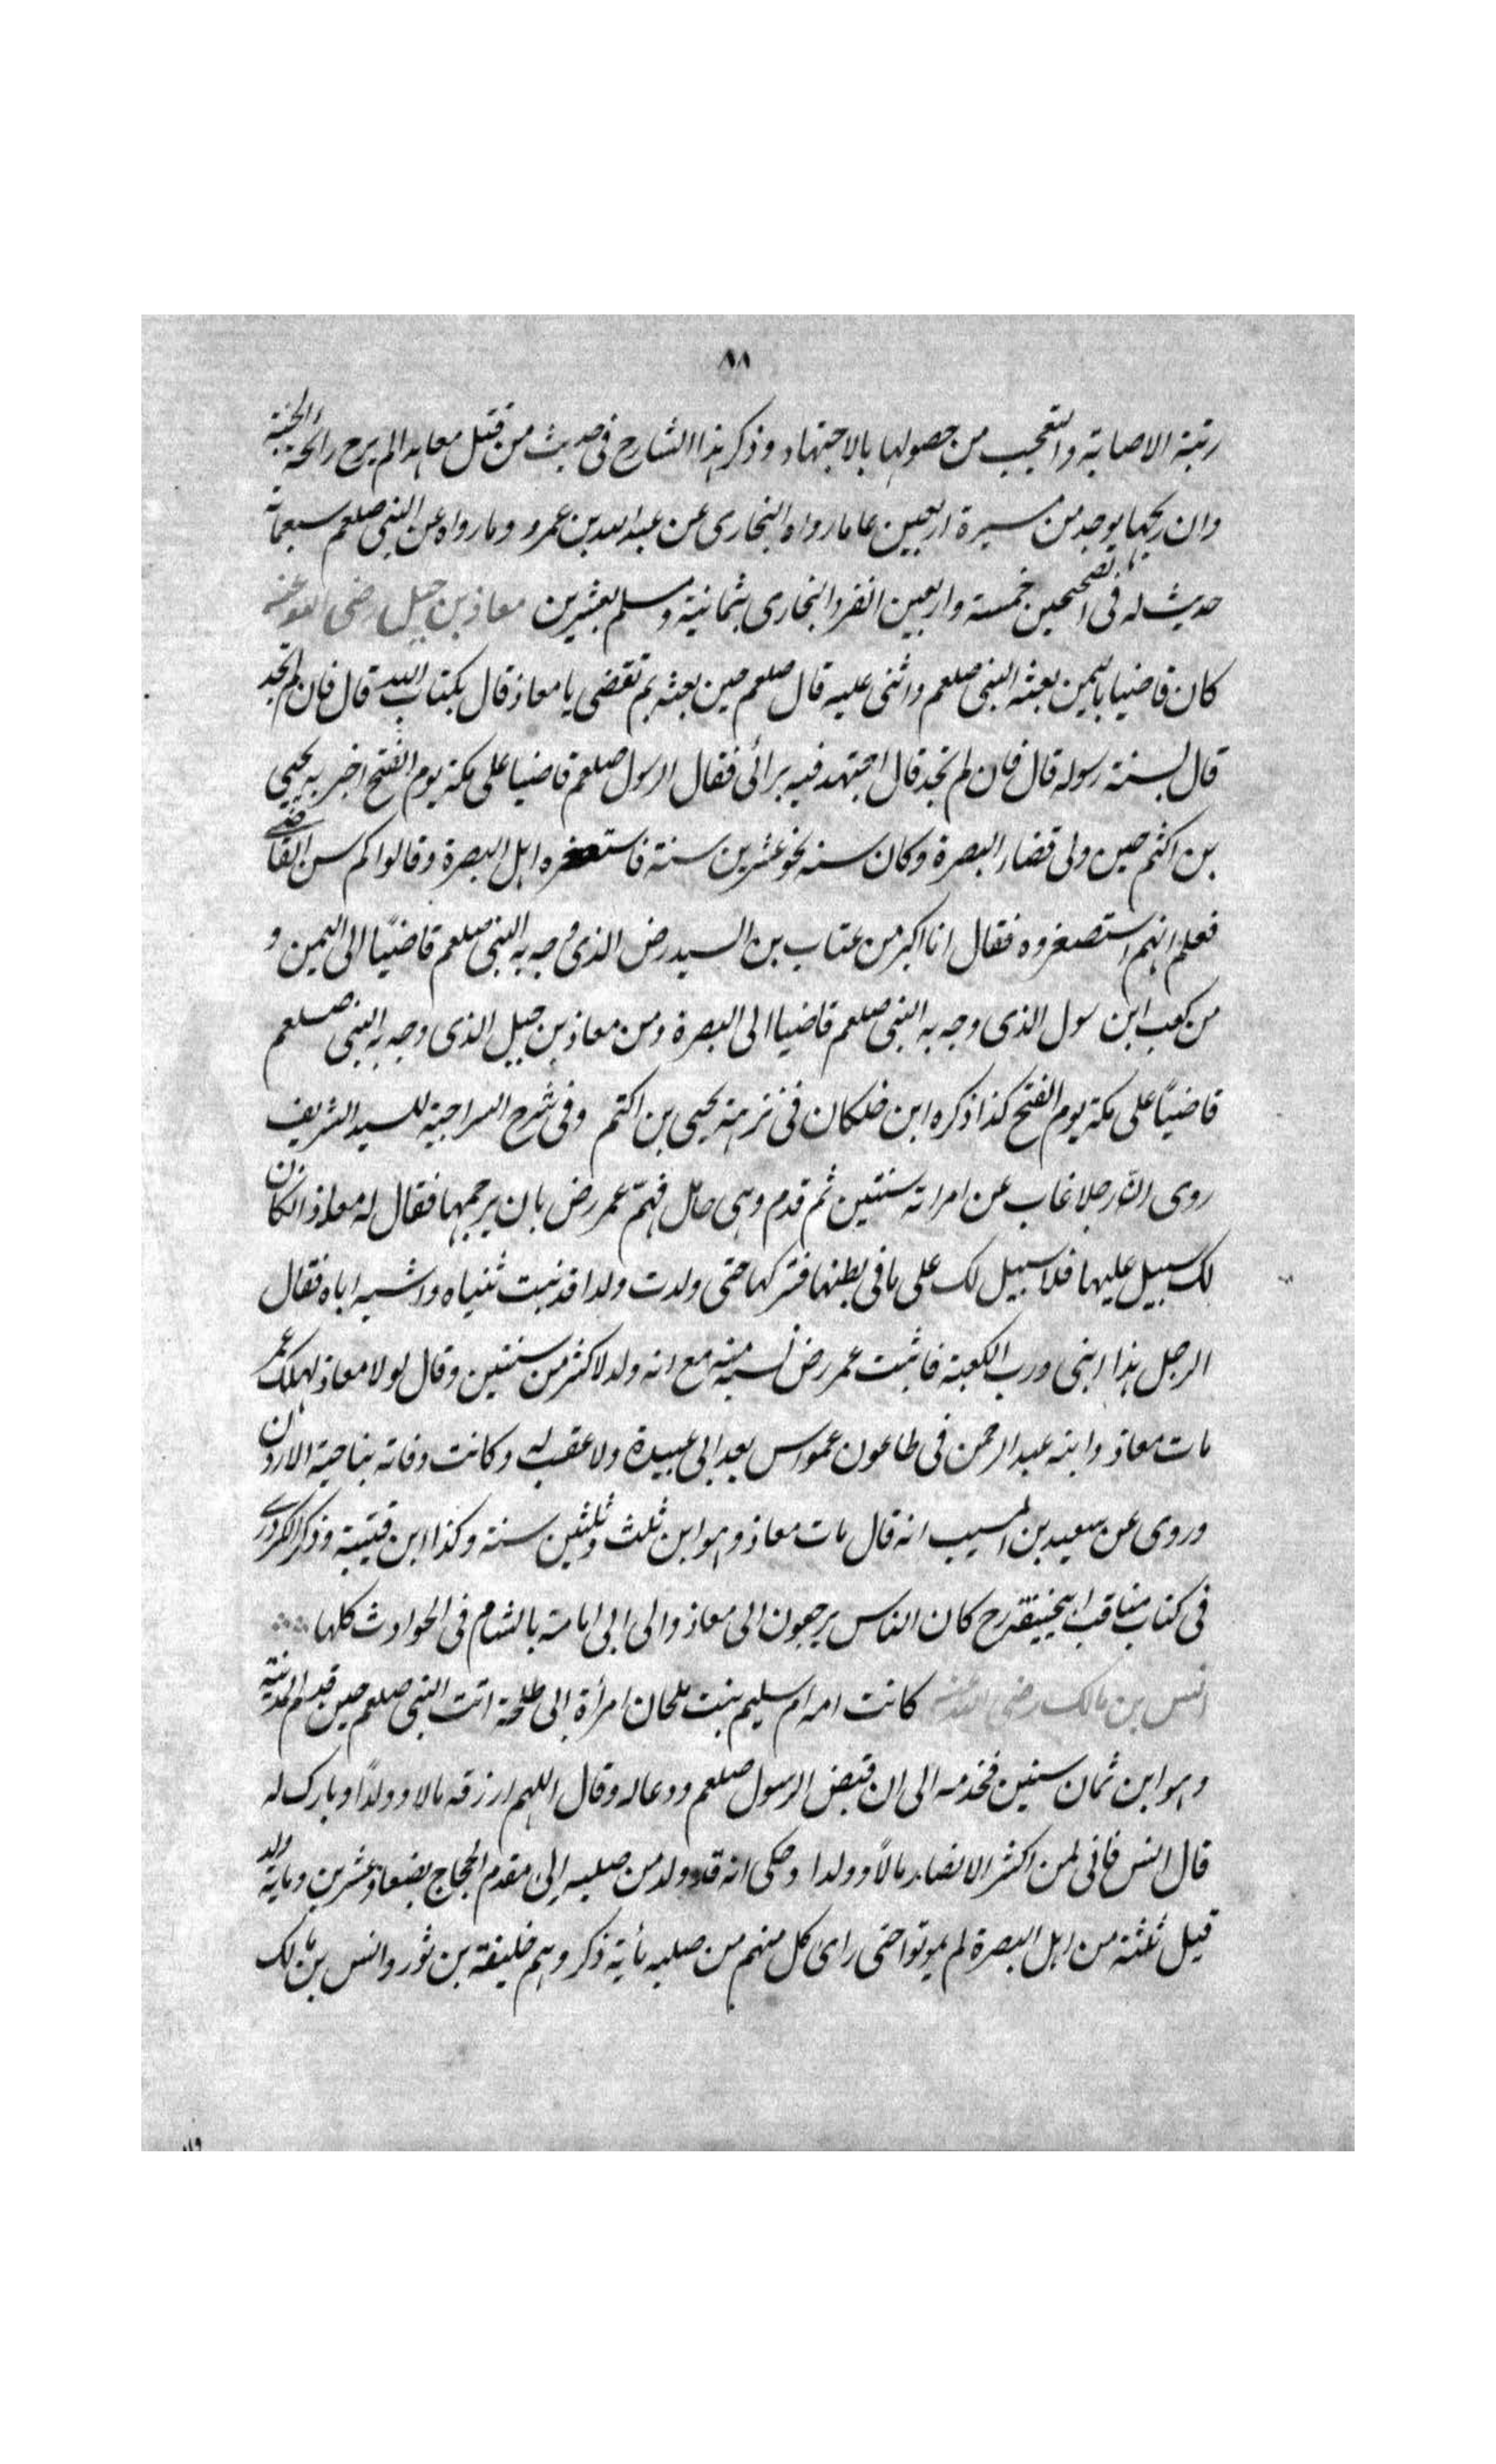 ٨٨
رتبة الاصابة والتعجب من حصولها بالاجتهاد وذكر هذا الشارح فى حديث من قتل معاهدا لم يرح رائحة الجنة
وان ريحها يوجد من مسيرة اربعين عاما رواه البخارى عن عبد الله بن عمرو وما رواه عن النبى صلعم سبعمائة
حديث له فى الصحيحين خمسة واربعين انفرد البخارى بثمانية ومسلم بعشرين معاذ بن جبل رضى الله عنه
كان قاضيا باليمن بعثه النبى صلعم واثنى عليه قال صلعم حين بعثه بم تقضى يا معاذ قال بكتاب الله قال فان لم تجد
قال بسنة رسوله قال فان لم تجد قال اجتهد فيه برائى فقال الرسول صلعم قاضيا على مكة يوم الفتح اخبر به يحيى
بن اكثم حين ولى قضاء البصرة وكان سنه نحو عشرين سنة فاستصغره اهل البصرة وقالوا كم سن القاضى
فعلم انهم استصغروه فقال انا اكبر من عتاب بن السيد رض الذى وجه به النبى صلعم قاضيًا الى اليمن و
من كعب ابن سول الذى وجه به النبى صلعم قاضيا الى البصرة ومن معاذ بن جبل الذى وجه به النبى صلعم
قاضيًا على مكة يوم الفتح كذا ذكره ابن خلكان فى ترجمة يحيى بن اكثم وفى شرح السراجية للسيد الشريف
روى انّ رجلا غاب عن امراته سنتين ثم قدم وهى حامل فهمّ عمر رض بان يرجمها فقال له معاذ ان كان
لك سبيل عليها فلا سبيل لك على ما فى بطنها فتركها حتى ولدت ولدا قد نبت ثنياه واشبه اباه فقال
الرجل هذا ابنى ورب الكعبة فاثبت عمر رض نسبه منه مع انه ولد لاكثر من سنتين وقال لولا معاذ لهلك عمر
مات معاذ وابنه عبد الرحمن فى طاعون عمواس بعد ابى عبيدة ولا عقب له وكانت وفاته بناحية الاردن
وروى عن سعيد بن المسيب انه قال مات معاذ وهو ابن ثلث وثلثين سنة وكذا ابن قتيبة وذكر الكردرى
فى كتاب مناقب ابيحنيفة رح كان الناس يرجعون الى معاذ والى ابى امامة بالشام فى الحوادث كلها
انس بن مالك رضى الله عنه كانت امه ام سليم بنت ملحان امرأة ابى طلحة اتت النبى صلعم حين قدم المدينة
وهو ابن ثمان سنين فخدمه الى ان قبض الرسول صلعم ودعا له وقال اللهم ارزقه مالا وولدًا وبارك له
قال انس فانى لمن اكثر الانصار مالاً وولدا وحكى انه قد ولد من صلبه الى مقدم الحجاج بضعا وعشرين ومائة ولد
قيل ثلثة من اهل البصرة لم يموتوا حتى راى كل منهم من صلبه مأية ذكر وهم خليفة بن ثور وانس بن مالك